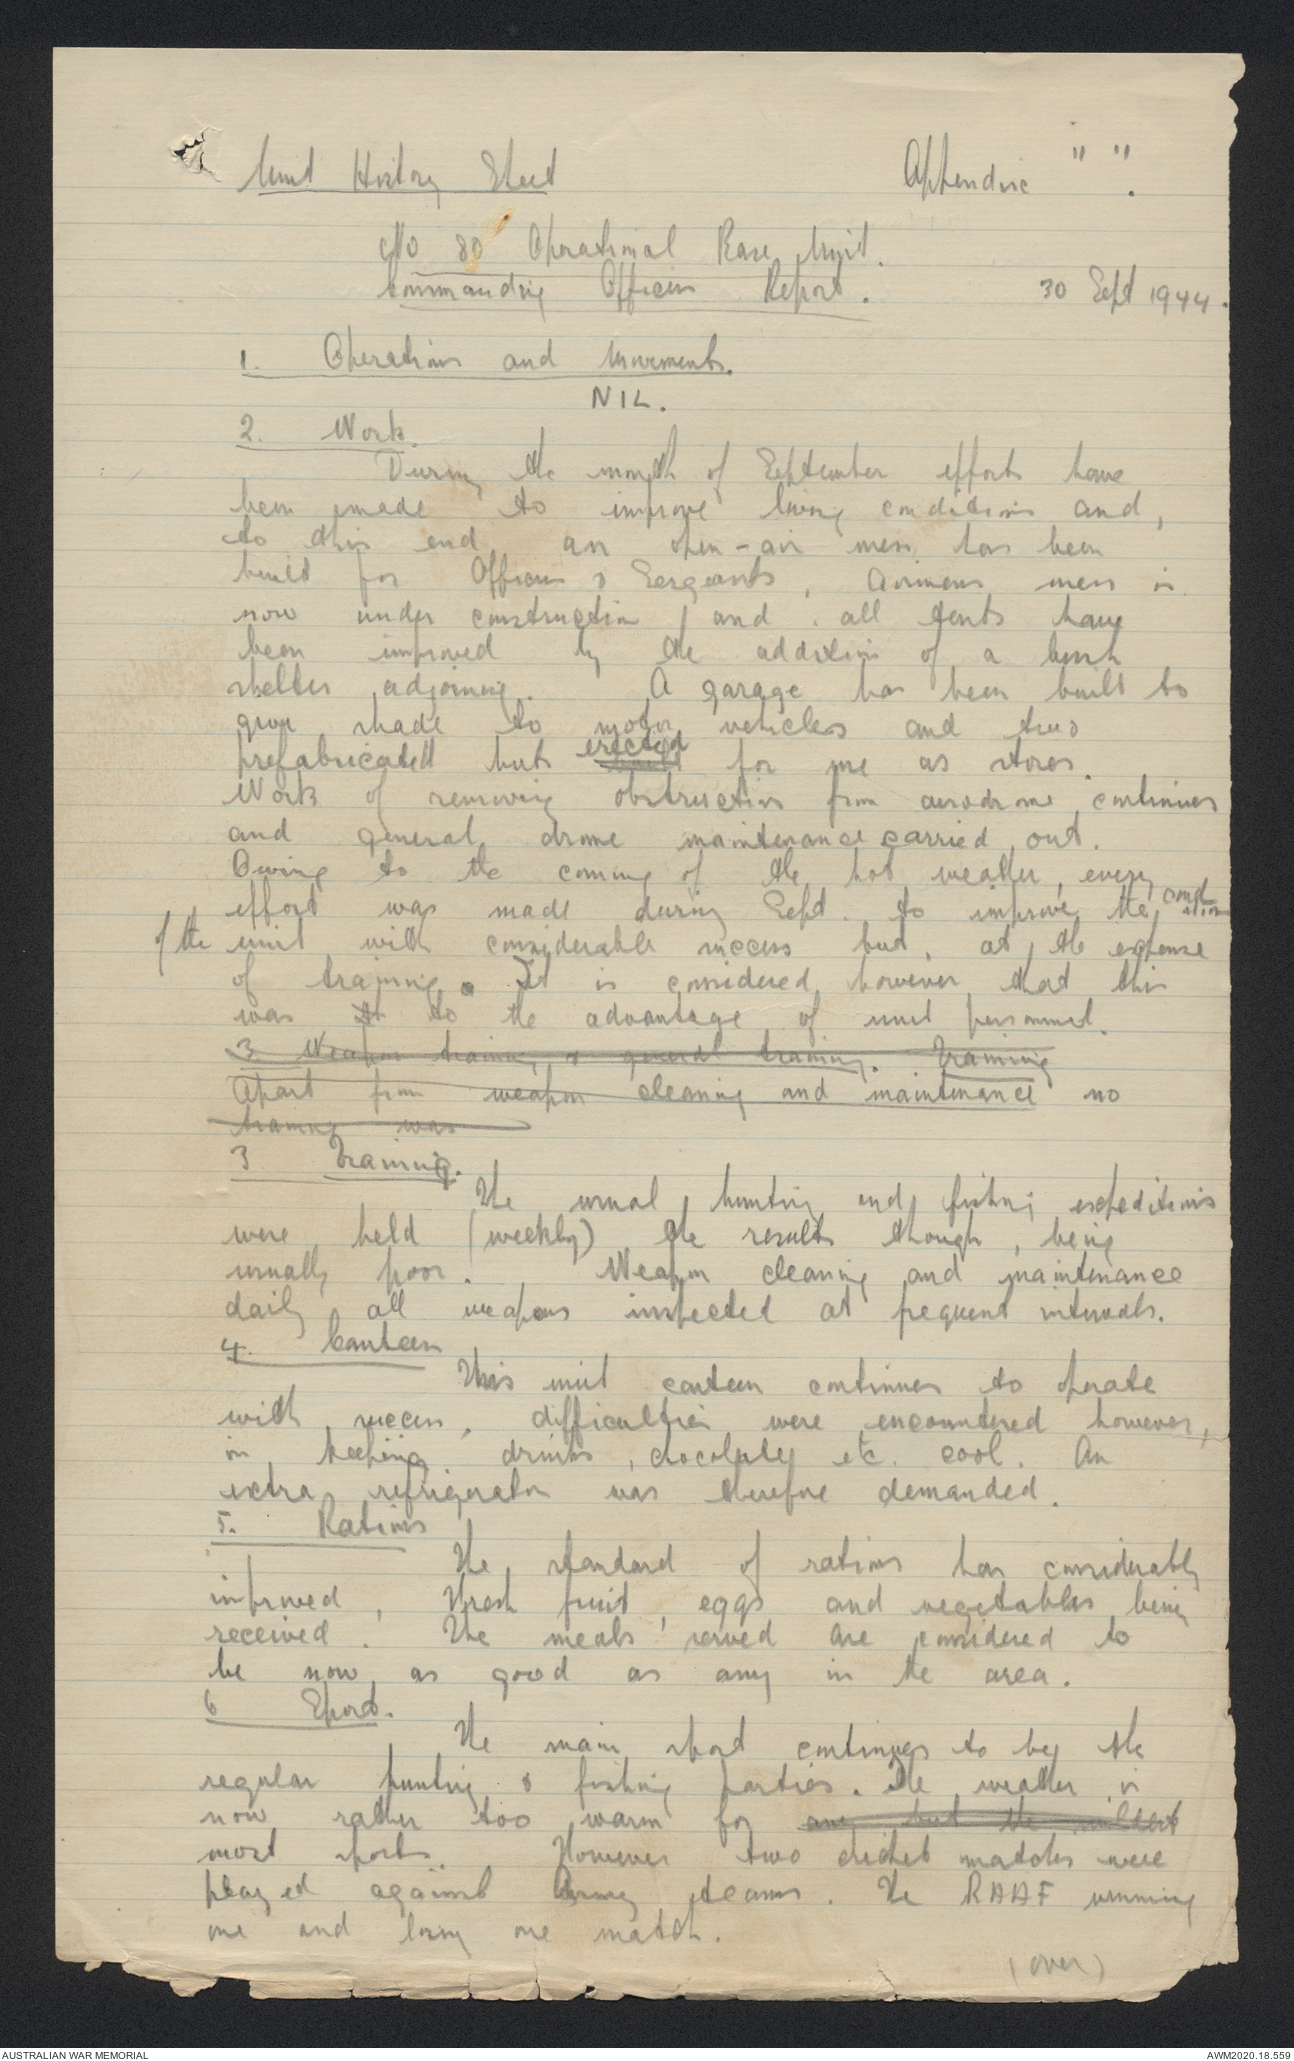 Unit History Sheet Appendix " ".
No 80 Operational Base Unit.
Commanding Officers Report. 30 Sept 1944.
1. Operations and Movements.
NIL.
2. Work.
During the month of September efforts have
been made to improve living conditions and,
to this end an open-air mess has been
built for Officers & Sergeants, Airmens mess is
now under construction, and all tents have
been improved by the addition of a bush
shelter adjoining. A garage has been built to
give shade to motor vehicles and two
prefabricated huts erected built for use as stores.
Work of removing obstruction from aerodrome continues
and general drome maintenance carried out.
Owing to the coming of the hot weather, every
effort was made during Sept. to improve the conditions
of the unit with considerable success but, at the expense
of training. It is considered however that this
was to the advantage of unit personnel.
3. Weapon training & general training. Training
Apart from weapon cleaning and maintenance no
training was
3 Training.
The usual hunting and fishing expeditions
were held (weekly) the results though, being
usually poor. Weapon cleaning and maintenance
daily all weapons inspected at frequent intervals.
4. Canteen
This unit canteen continues to operate
with success, difficulties were encountered however,
in keeping drinks, chocolates etc. cool. An
extra refrigerator was therefore demanded.
5. Rations
The standard of rations has considerably
improved, fresh fruit, eggs and vegetables being
received. The meals served are considered to
be now as good as any in the area.
6 Sport.
The main sport continues to be the
regular hunting & fishing parties. The weather is
now rather too warm for any but the mildest
most sports. However two cricket matches were
played against Army teams. The RAAF winning
one and losing one match.
(over)
AUSTRALIAN WAR MEMORIAL AWM2020.18.559